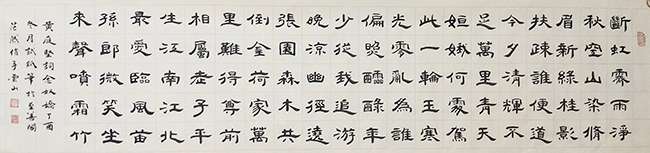 斷虹霽雨淨
秋空山染修
眉新綠桂影
扶疎誰便道
今夕清輝不
足萬里青天
姮娥何處駕
此一輪玉寒
光零亂為誰
偏照醽醁年
少從我追游
晚涼幽徑遶
張園森木共
倒金荷家萬
里難得尊前
相屬老子平
生江南江北
最愛臨風笛
孫郎微笑坐
來聲噴霜竹
黃庭堅詞念奴嬌丁酉
冬月試紙筆於至善閣